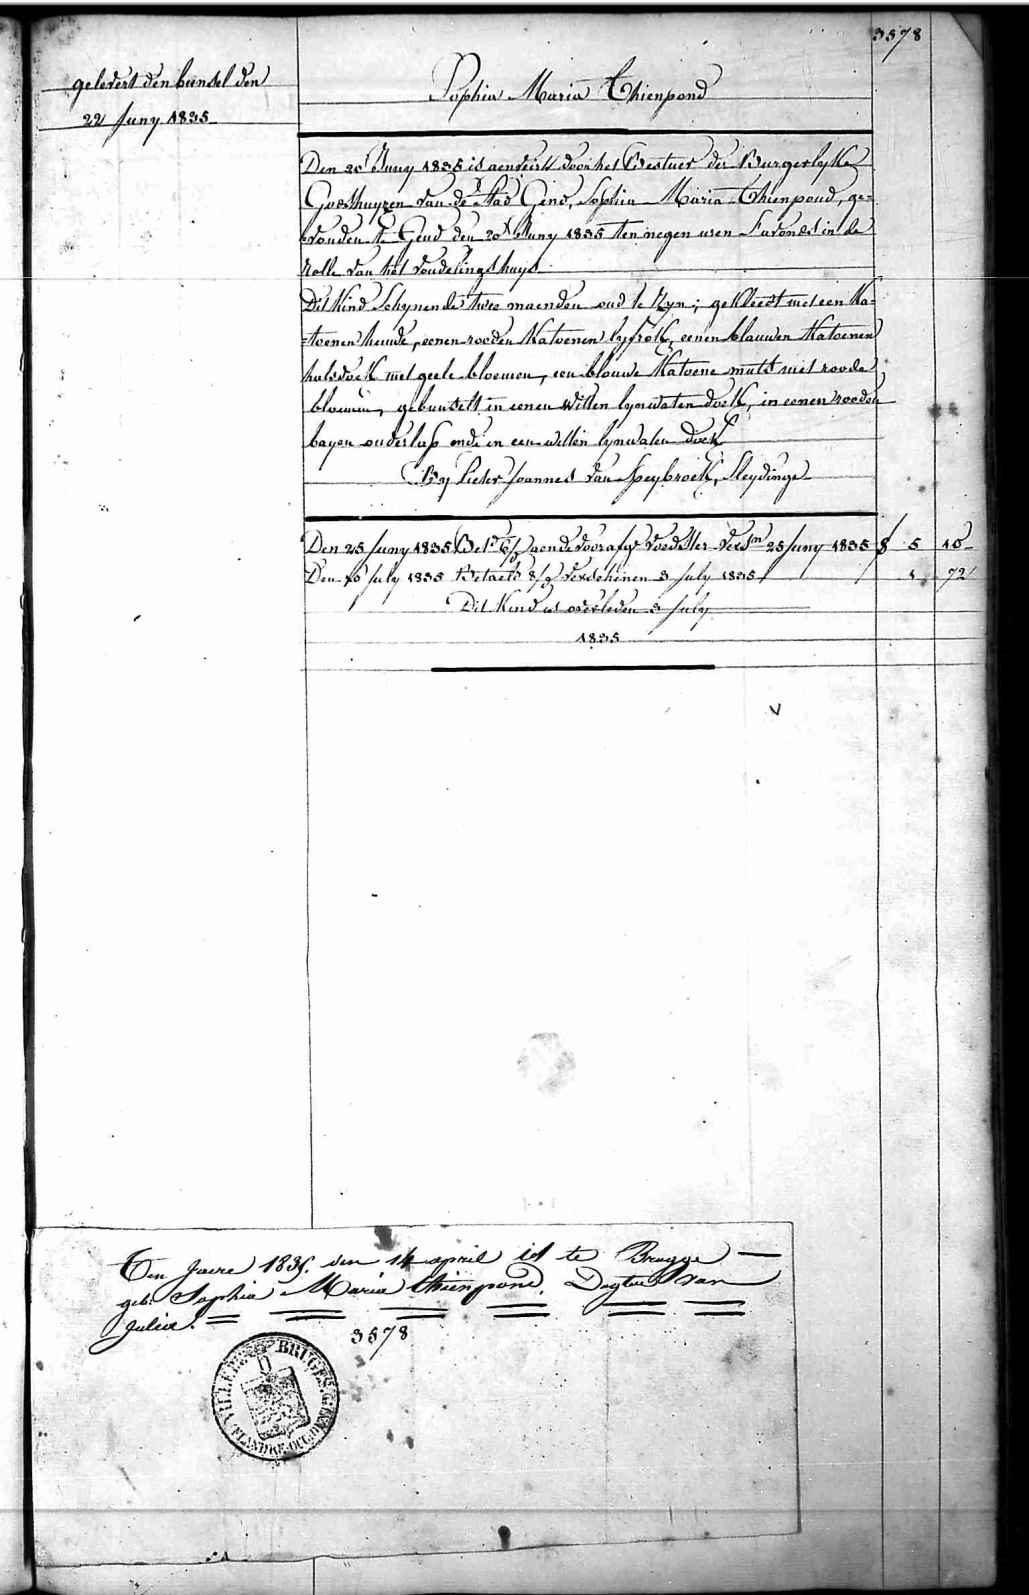 3578
gelevert den bundel den
22 Juny 1835
Sophia Maria Thienpond
Den 20 Juny 1835 is aenveirt door het Bestuer der Burgerlyke
Godshuyzen van de Stad Gend, Sophia Maria Thienpond, ge=
vonden te Gend den 20 Juny 1835 ten negen uren s'avonds in de
Rolle van het vondelingshuys.
Dit Kind schynende twee maenden oud te Zyn; gekleedt met een Ka=
=toenen hemde, eenen rooden Katoenen lyfrok, eenen blauwen Katoenen
halsdoek met geele bloemen, een blouwe Katoene muts met roode
bloemen, gebundelt in eenen witten lynwaten doek, in eenen rooden
bayen onderlap ende in een witten lynwaten doek
By Pieter Joannes van Speybroek, Sleydinge
Den 25 Juny 1835 Bet. aende voorafgde voedster versn 25 Juny 1835 5 10
Den 10 July 1835 Betaelt verschenen 3 July 1835 1 72
Dit Kind is overleden 3 July
1835
Ten jaere 1835. den 14 april is te Brugge
geb. Sophia Maria Thienpond, Dogter van
Julia.
3578
VILLE DE BRUGES
FLANDRE OCC.